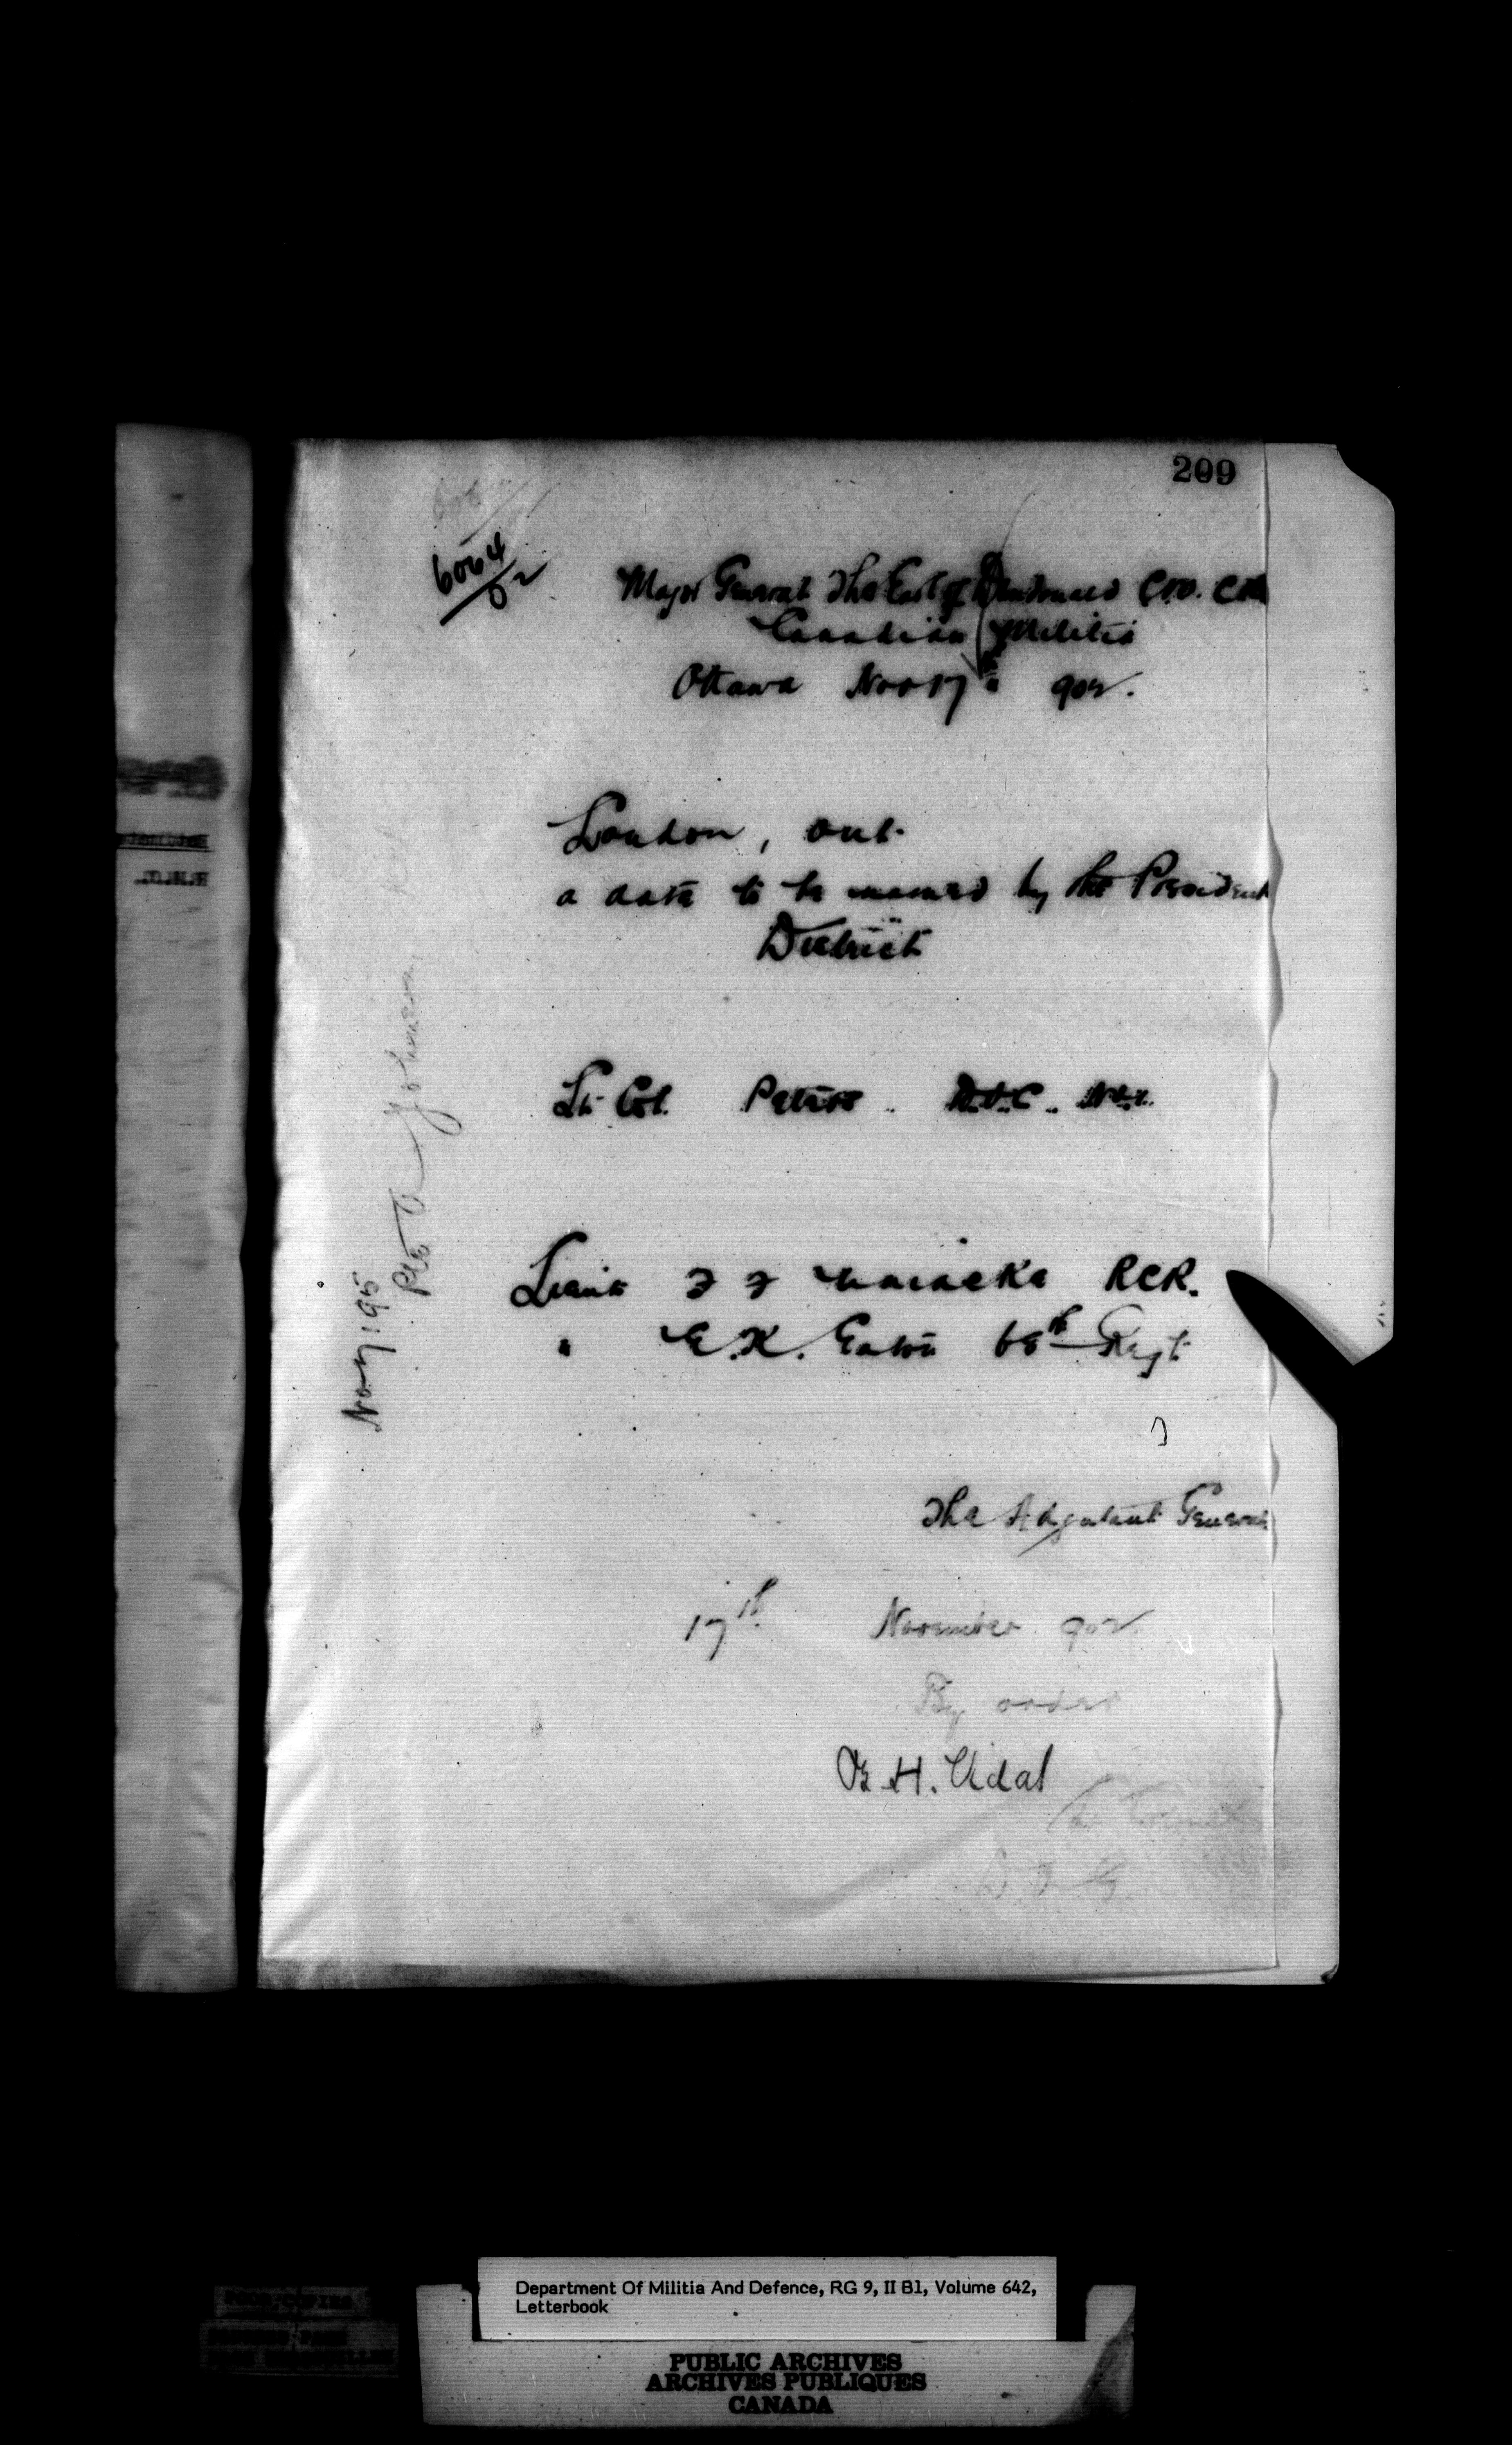 209
6064/02
Major General The Earl of Dundonald C.V.O. CB
Canadian Militia
Ottawa Nov 17th 902.
London, Ont.
a date to be named by the President
District
Lt. Col. Peters D.O.C. No. 1.
Lieut F F Uniacke RCR.
" E.K. Eaton 68th Regt
The Adjutant General
17th November 902
By order
B H. Vidal
Lt Colonel
D A G
No 7195
Pte Johnson
Department Of Militia And Defence, RG 9, II B1, Volume 642,
Letterbook
PUBLIC ARCHIVES
ARCHIVES PUBLIQUES
CANADA